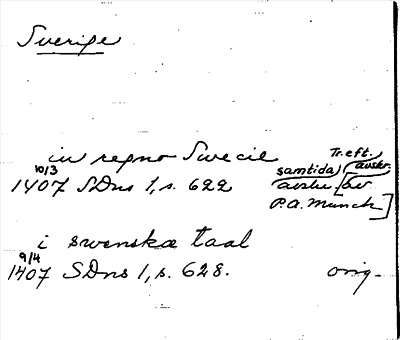 Sverige
in regno Swecie
Tr. eft.
avskr.
10/3
1407 SDns 1, s. 622
samtida
avskr. [av
P.A. Munch]
i swenska taal
9/4
1407 SDns 1, s. 628.
orig.